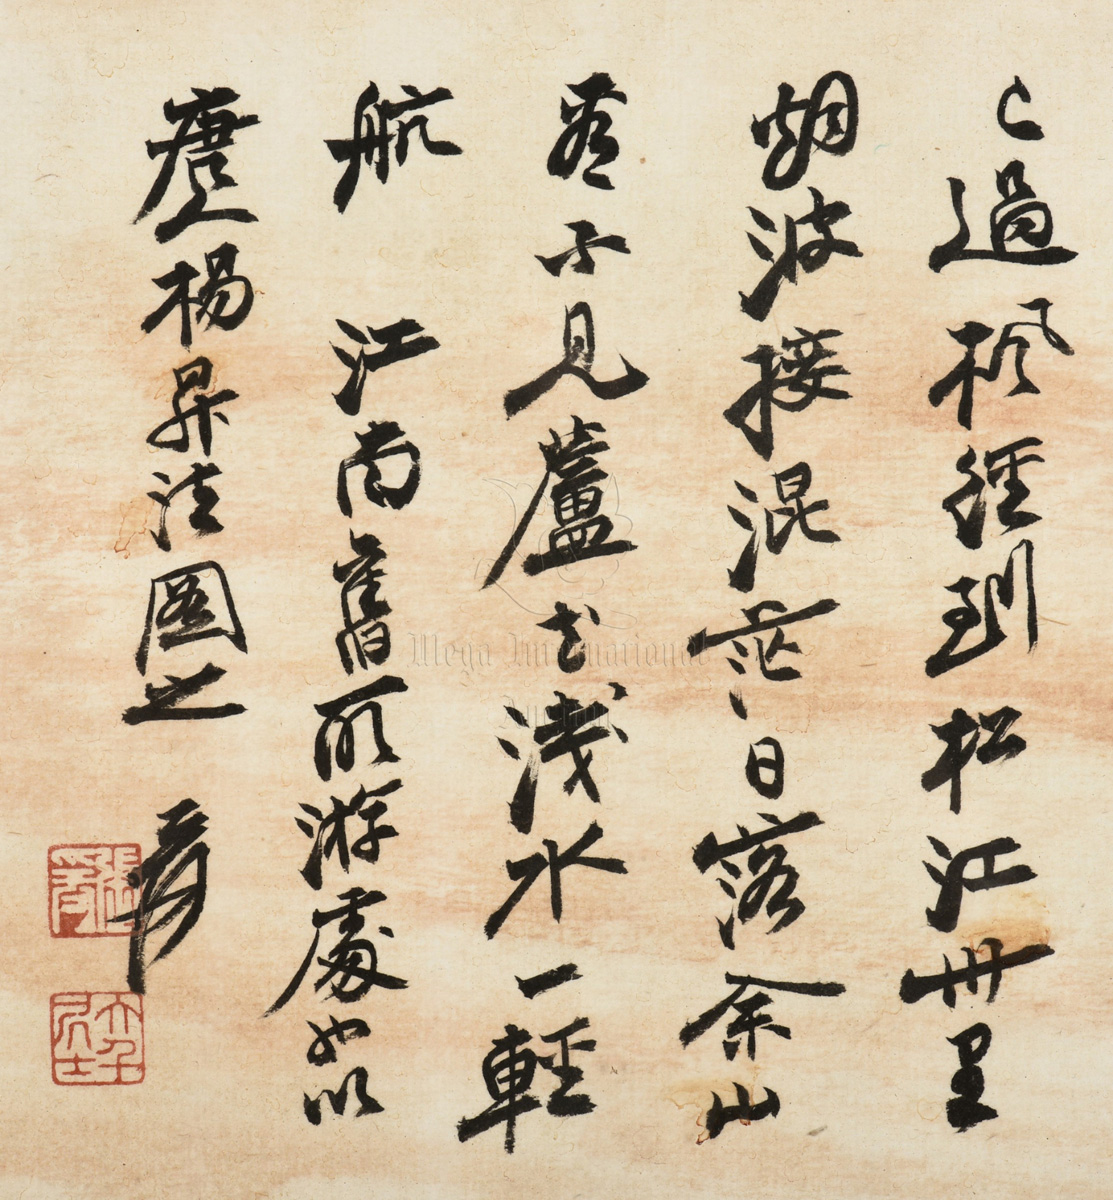 已過楓徑到松江卅里
湖波接混茫日落佘山
看不見蘆花淺水一輕
航 江南舊所游處也以
唐人楊昇法圖之 爰
張爰
大千居士
Mega International
Auction